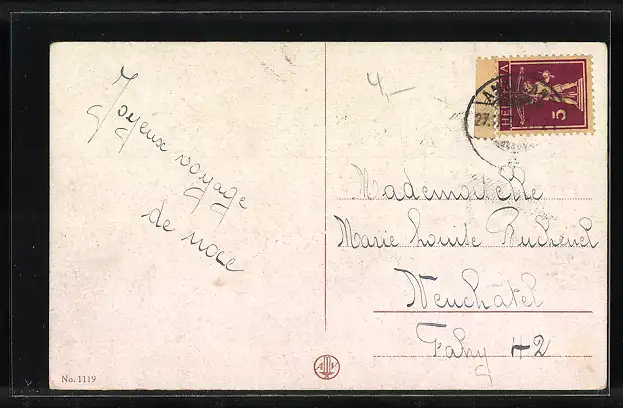 Joyeux voyage
de noce
4,-
HELVETIA
5
27.
Mademoiselle
Marie Louise
Neuchâtel
Fahy 42
No. 1119
A V